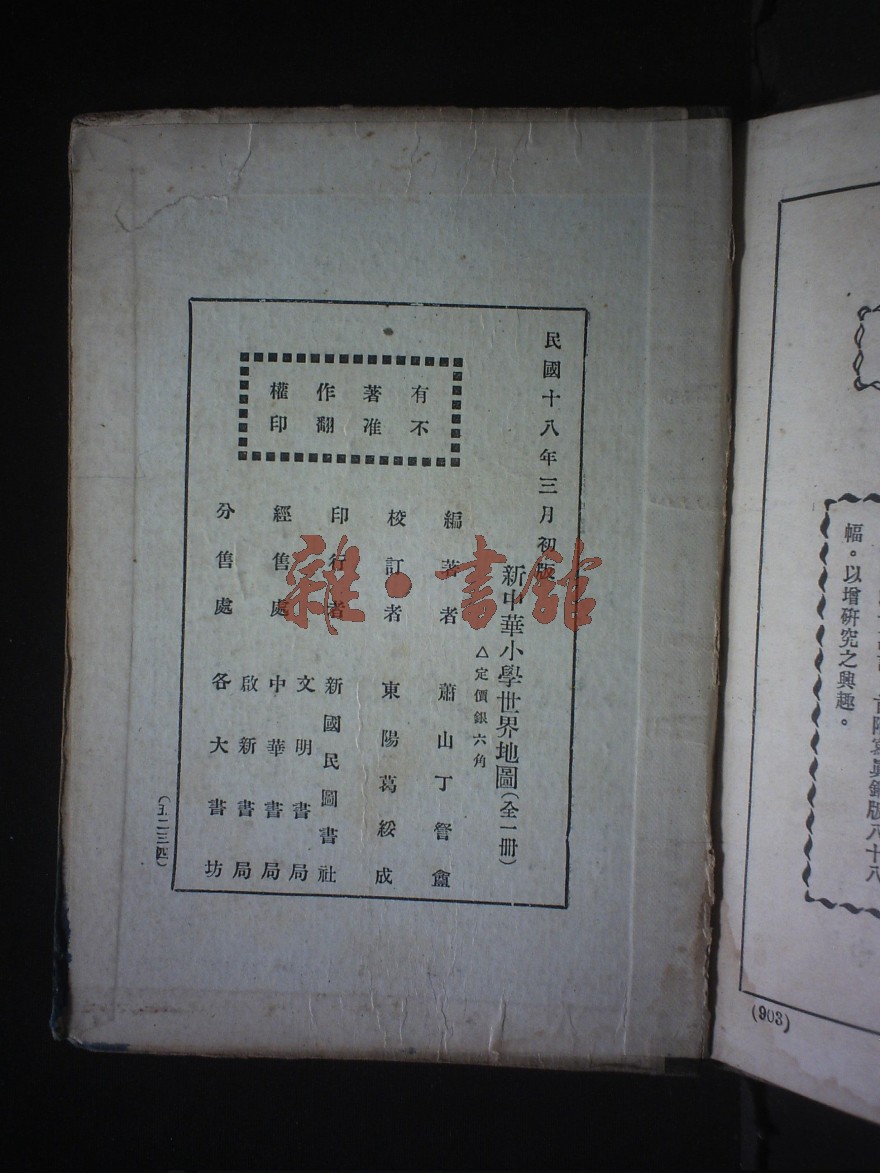 民國十八年三月初版
新中華小學世界地圖（全一册）
△定價銀六角
有著作權
不准翻印
編著者 蕭山丁詧盦
校訂者 東陽葛綏成
印行者 新國民圖書社
經售處 文明書局
中華書局
啟新書局
分售處 各大書坊
（五二三四）
雜·書館
幅。以增研究之興趣。
(903)